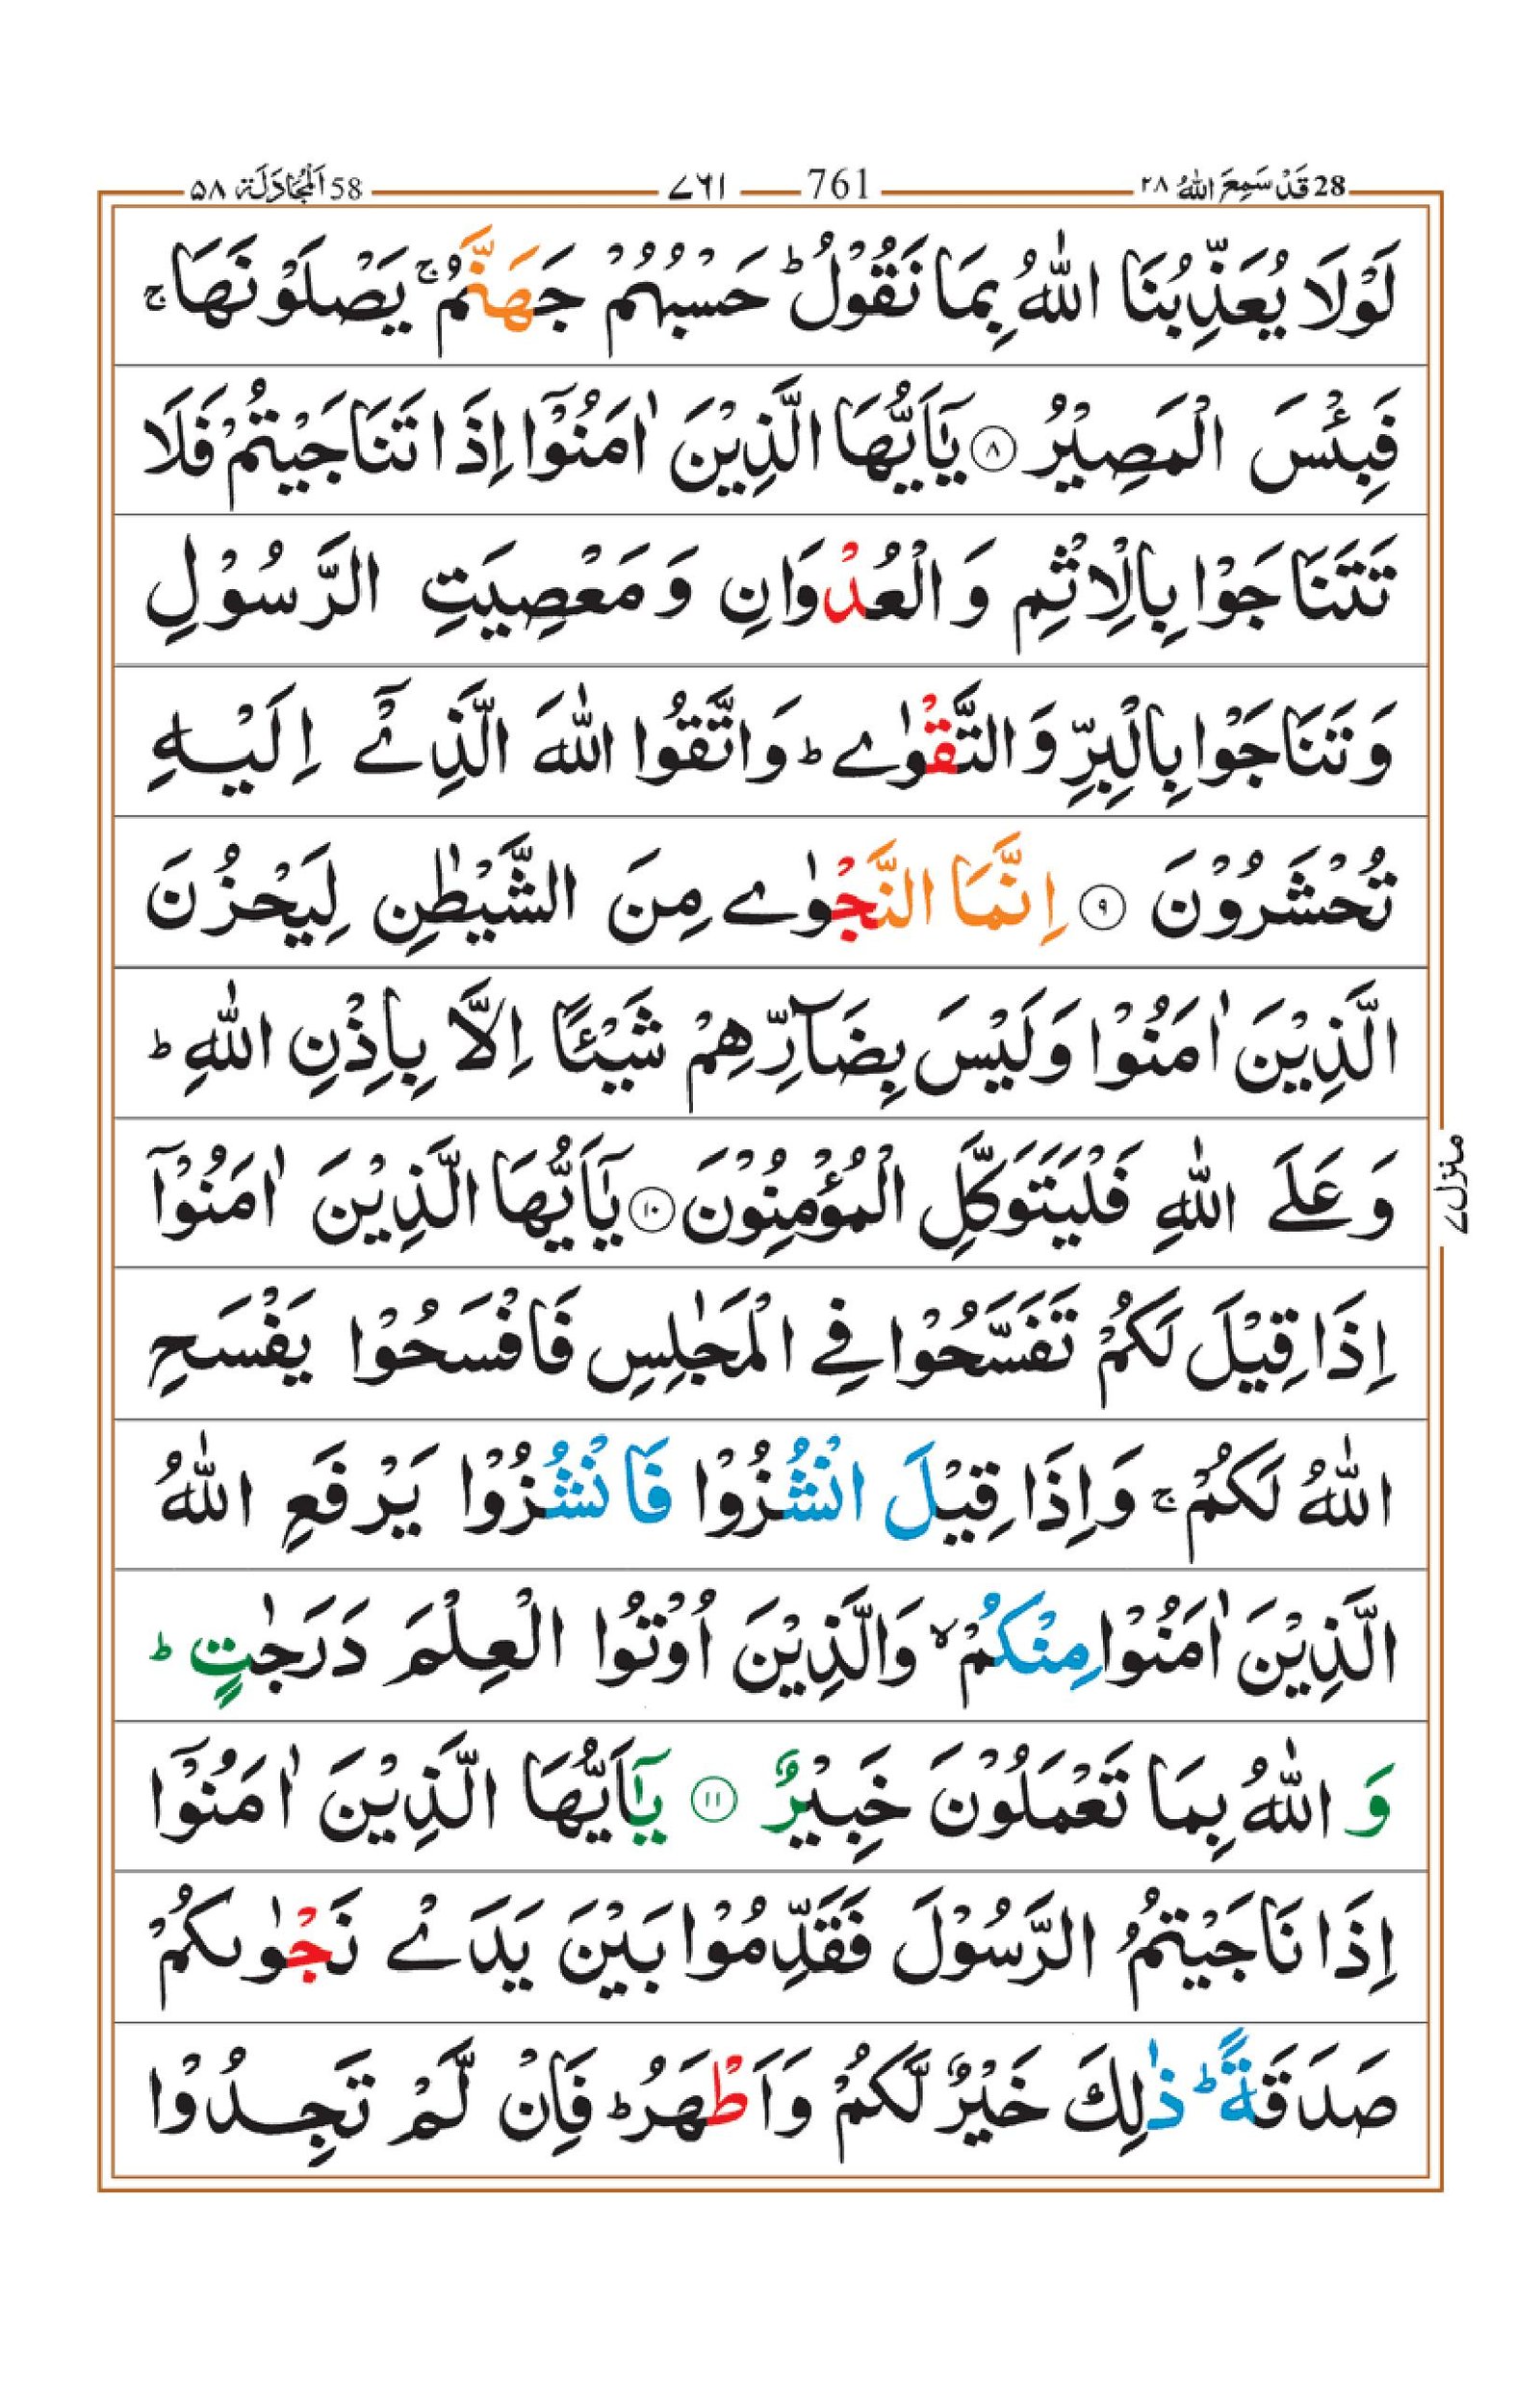 28 قَدْ سَمِعَ اللّٰهُ ٢٨ 761 ٧٦١ 58 اَلْمُجَادَلَة ۵۸
لَوْلَا يُعَذِّبُنَا اللّٰهُ بِمَا نَقُوْلُ ؕ حَسْبُهُمْ جَهَنَّمُ ۚ يَصْلَوْنَهَا ۚ
فَبِئْسَ الْمَصِيْرُ ۝٨ يٰۤاَيُّهَا الَّذِيْنَ اٰمَنُوْۤا اِذَا تَنَاجَيْتُمْ فَلَا
تَتَنَاجَوْا بِالْاِثْمِ وَ الْعُدْوَانِ وَ مَعْصِيَتِ الرَّسُوْلِ
وَ تَنَاجَوْا بِالْبِرِّ وَ التَّقْوٰى ؕ وَ اتَّقُوا اللّٰهَ الَّذِىْۤ اِلَيْهِ
تُحْشَرُوْنَ ۝٩ اِنَّمَا النَّجْوٰى مِنَ الشَّيْطٰنِ لِيَحْزُنَ
الَّذِيْنَ اٰمَنُوْا وَ لَيْسَ بِضَآرِّهِمْ شَيْـًٔا اِلَّا بِاِذْنِ اللّٰهِ ؕ
وَ عَلَى اللّٰهِ فَلْيَتَوَكَّلِ الْمُؤْمِنُوْنَ ۝١٠ يٰۤاَيُّهَا الَّذِيْنَ اٰمَنُوْۤا
اِذَا قِيْلَ لَكُمْ تَفَسَّحُوْا فِى الْمَجٰلِسِ فَافْسَحُوْا يَفْسَحِ
اللّٰهُ لَكُمْ ۚ وَ اِذَا قِيْلَ انْشُزُوْا فَانْشُزُوْا يَرْفَعِ اللّٰهُ
الَّذِيْنَ اٰمَنُوْا مِنْكُمْ ۙ وَ الَّذِيْنَ اُوْتُوا الْعِلْمَ دَرَجٰتٍ ؕ
وَ اللّٰهُ بِمَا تَعْمَلُوْنَ خَبِيْرٌ ۝١١ يٰۤاَيُّهَا الَّذِيْنَ اٰمَنُوْۤا
اِذَا نَاجَيْتُمُ الرَّسُوْلَ فَقَدِّمُوْا بَيْنَ يَدَىْ نَجْوٰىكُمْ
صَدَقَةً ؕ ذٰلِكَ خَيْرٌ لَّكُمْ وَ اَطْهَرُ ؕ فَاِنْ لَّمْ تَجِدُوْا
منزل ٧